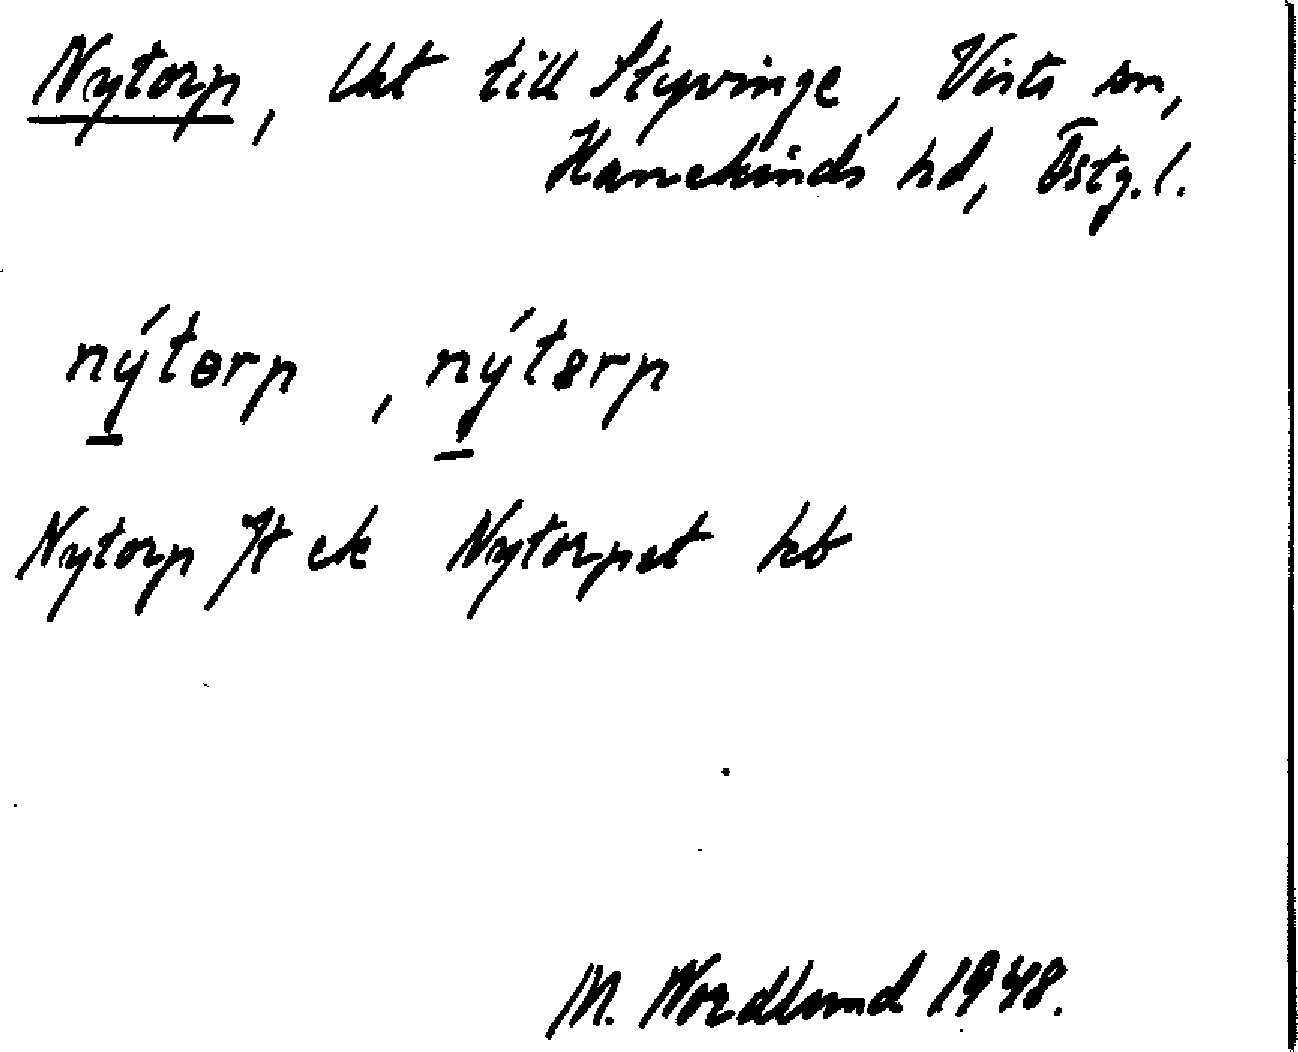 Nytorp, lht till Styvinge, Vists sn,
Hanekinds hd, Östg. l.
nýtɵrp , nýt8rp
Nytorp Jt ek Nytorpet kb
M. Nordlund 1948.